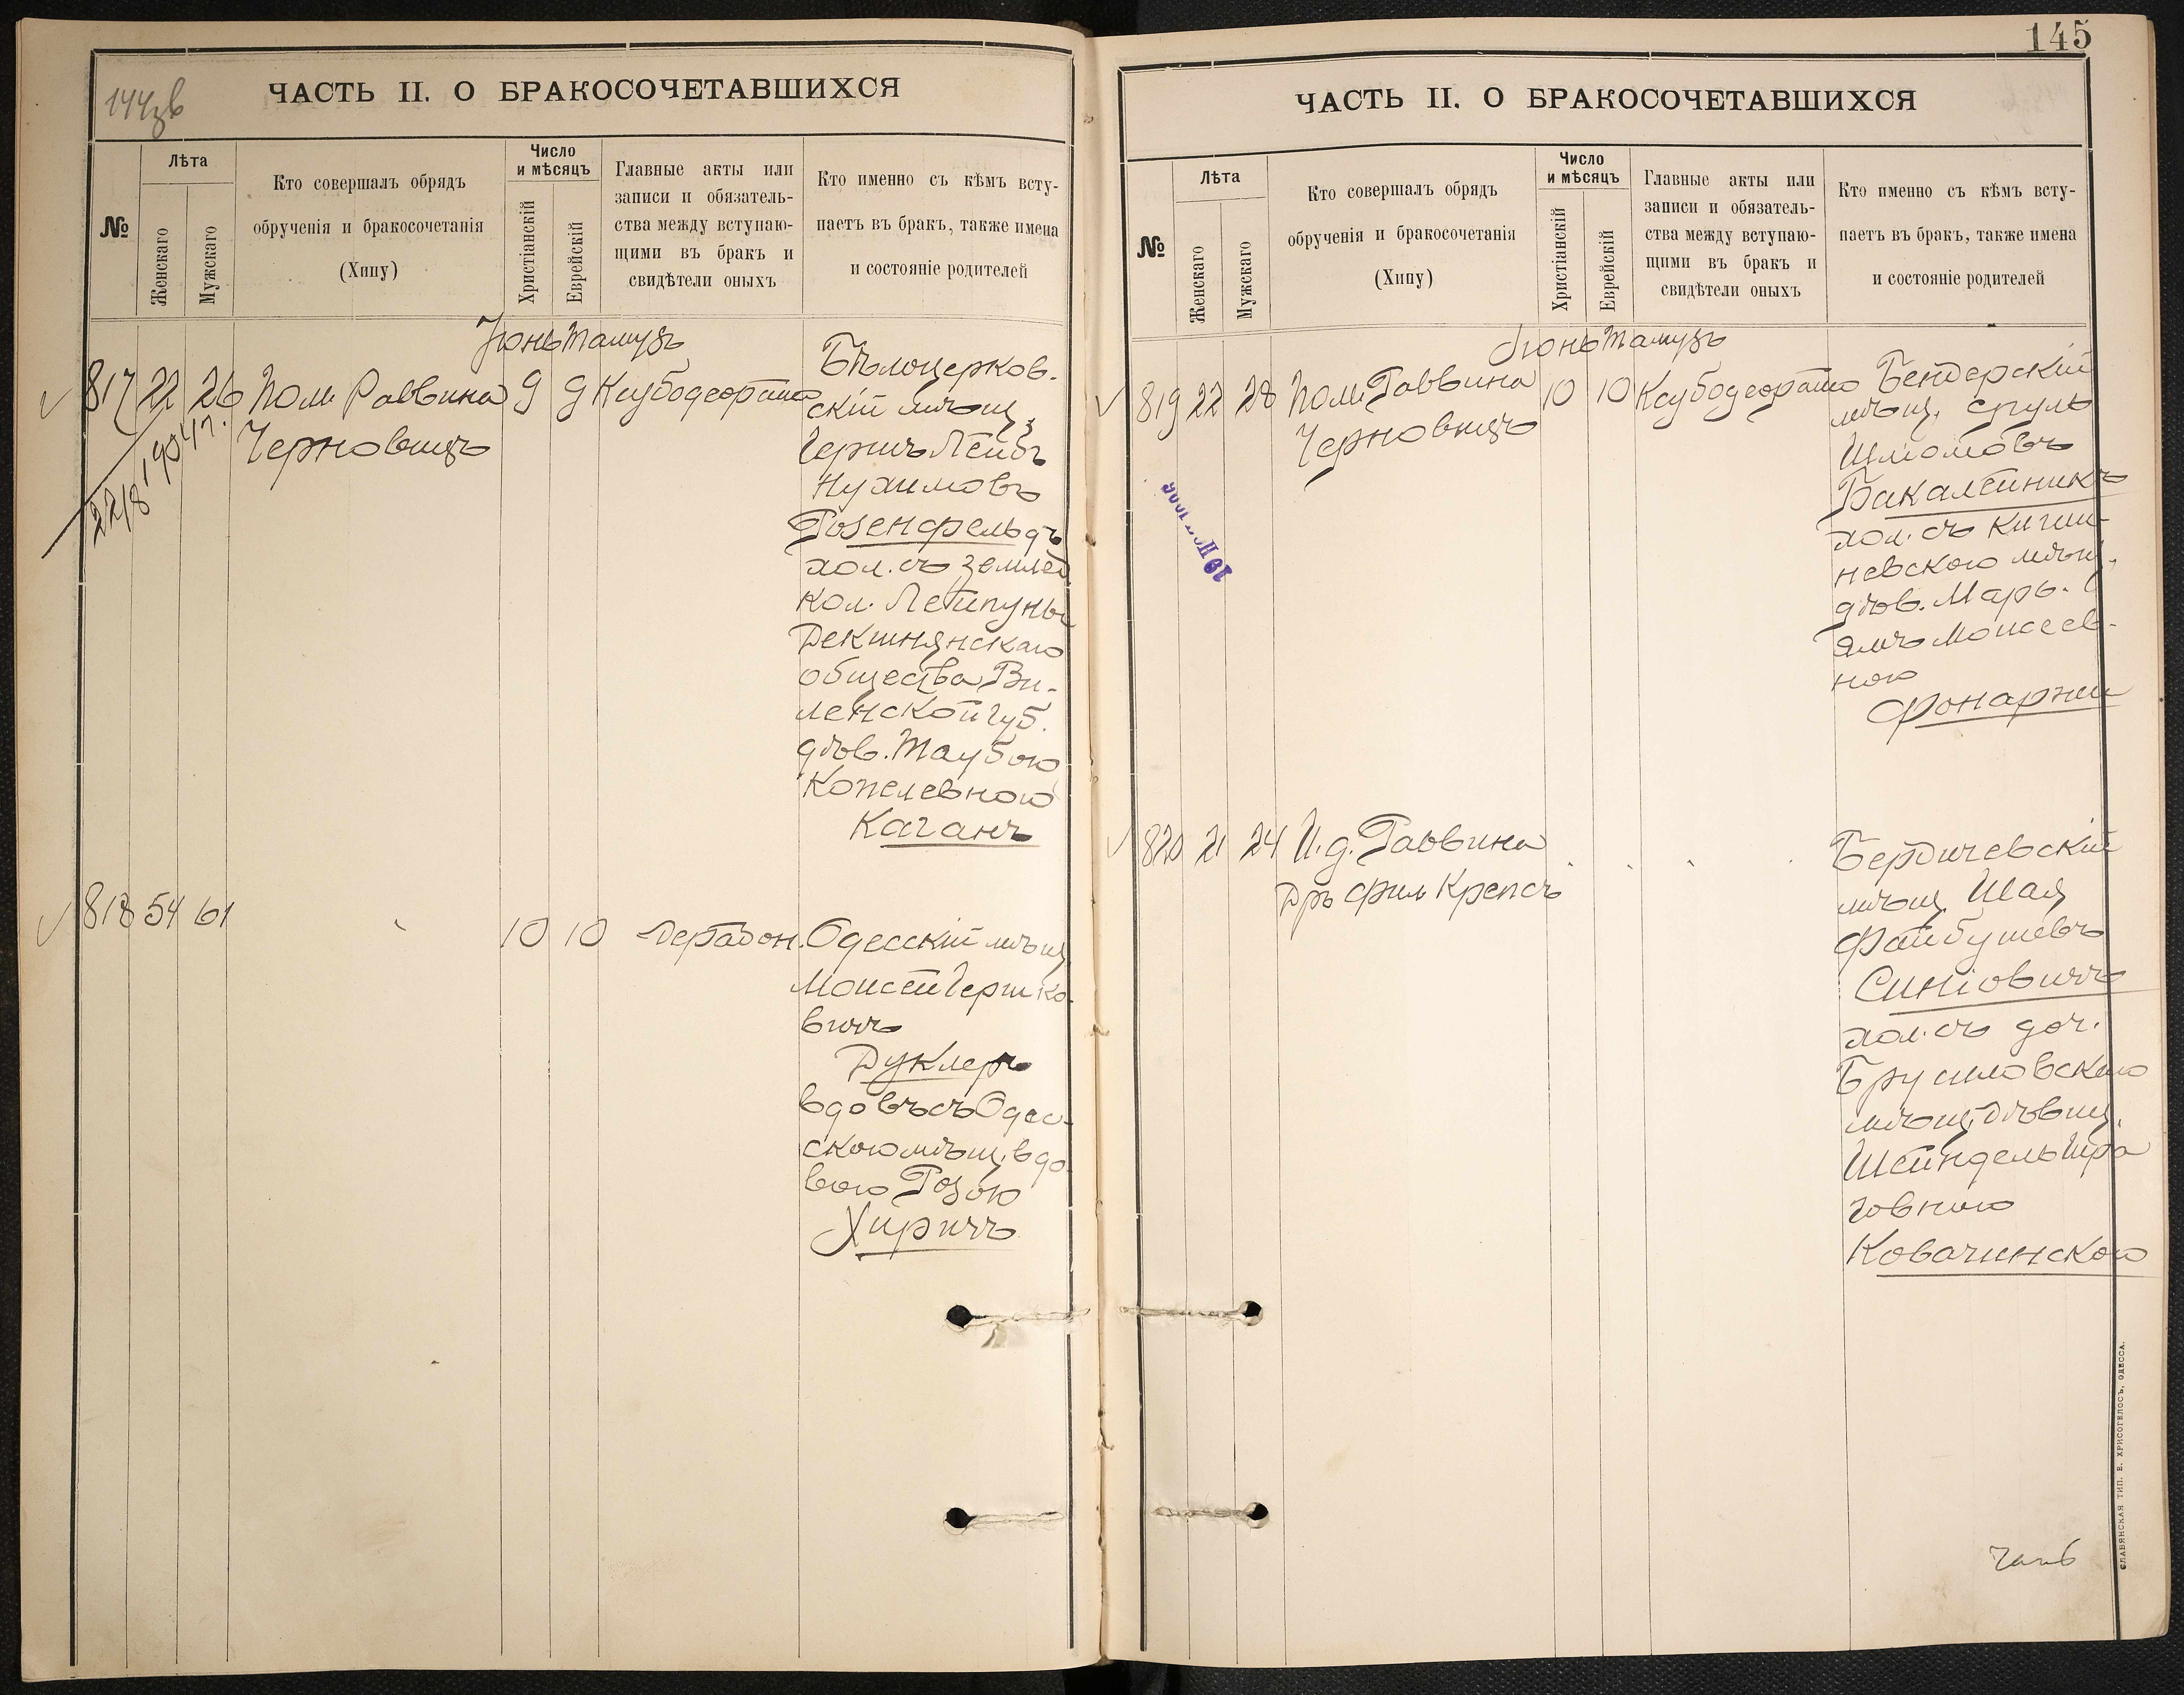 144зв
ЧАСТЬ II. О БРАКОСОЧЕТАВШИХСЯ
№
Лѣта
Женскаго
Мужскаго
Кто совершалъ обрядъ
обрученія и бракосочетанія
(Хипу)
Число
и мѣсяцъ
Христіанскій
Еврейскій
Главные акты или
записи и обязатель-
ства между вступаю-
щими въ бракъ и
свидѣтели оныхъ
Кто именно съ кѣмъ всту-
паетъ въ бракъ, также имена
и состояніе родителей
Іюнь Тамузъ
817 22 26 Пом. Раввина 9 9 Ксубодеората
Черновицъ
22/8
Бѣлоцерков-
скій мѣщ.
Гершъ Лейбъ
Нухимовъ
Розенфельдъ
хол. съ землед.
кол. Лейпуны
Декшнянскаго
общества Ви-
ленской губ.
дѣв. Таубою
Копелевною
Каганъ
818 54 61 10 10
Одесскій мѣщ.
Моисей Гершко-
вичъ
Дуклеръ
вдовъ съ Одес-
скою мѣщ. вдо-
вою Розою
Хиричъ
145
ЧАСТЬ II. О БРАКОСОЧЕТАВШИХСЯ
№
Лѣта
Женскаго
Мужскаго
Кто совершалъ обрядъ
обрученія и бракосочетанія
(Хипу)
Число
и мѣсяцъ
Христіанскій
Еврейскій
Главные акты или
записи и обязатель-
ства между вступаю-
щими въ бракъ и
свидѣтели оныхъ
Кто именно съ кѣмъ всту-
паетъ въ бракъ, также имена
и состояніе родителей
Іюнь Тамузъ
819 22 28 Пом. Раввина 10 10 Ксубодеората
Черновицъ
Бендерскій
мѣщ. Сруль
Шлиомовъ
Бакалейникъ
хол. съ Киши-
невскою мѣщ.
дѣв. Марь-
ямъ Моисеев-
ною
Фонаржи
820 21 24 И. д. Раввина
Дръ Фил. Крепсъ
Бердичевскій
мѣщ. Шая
Файбушевъ
Синіовичъ
хол. съ доч.
Брусиловскаго
мѣщ. дѣвиц.
Шейндель Шра
говною
Ковачинскою
СЛАВЯНСКАЯ ТИП. Е. ХРИСОГЕЛОСЪ, ОДЕССА.